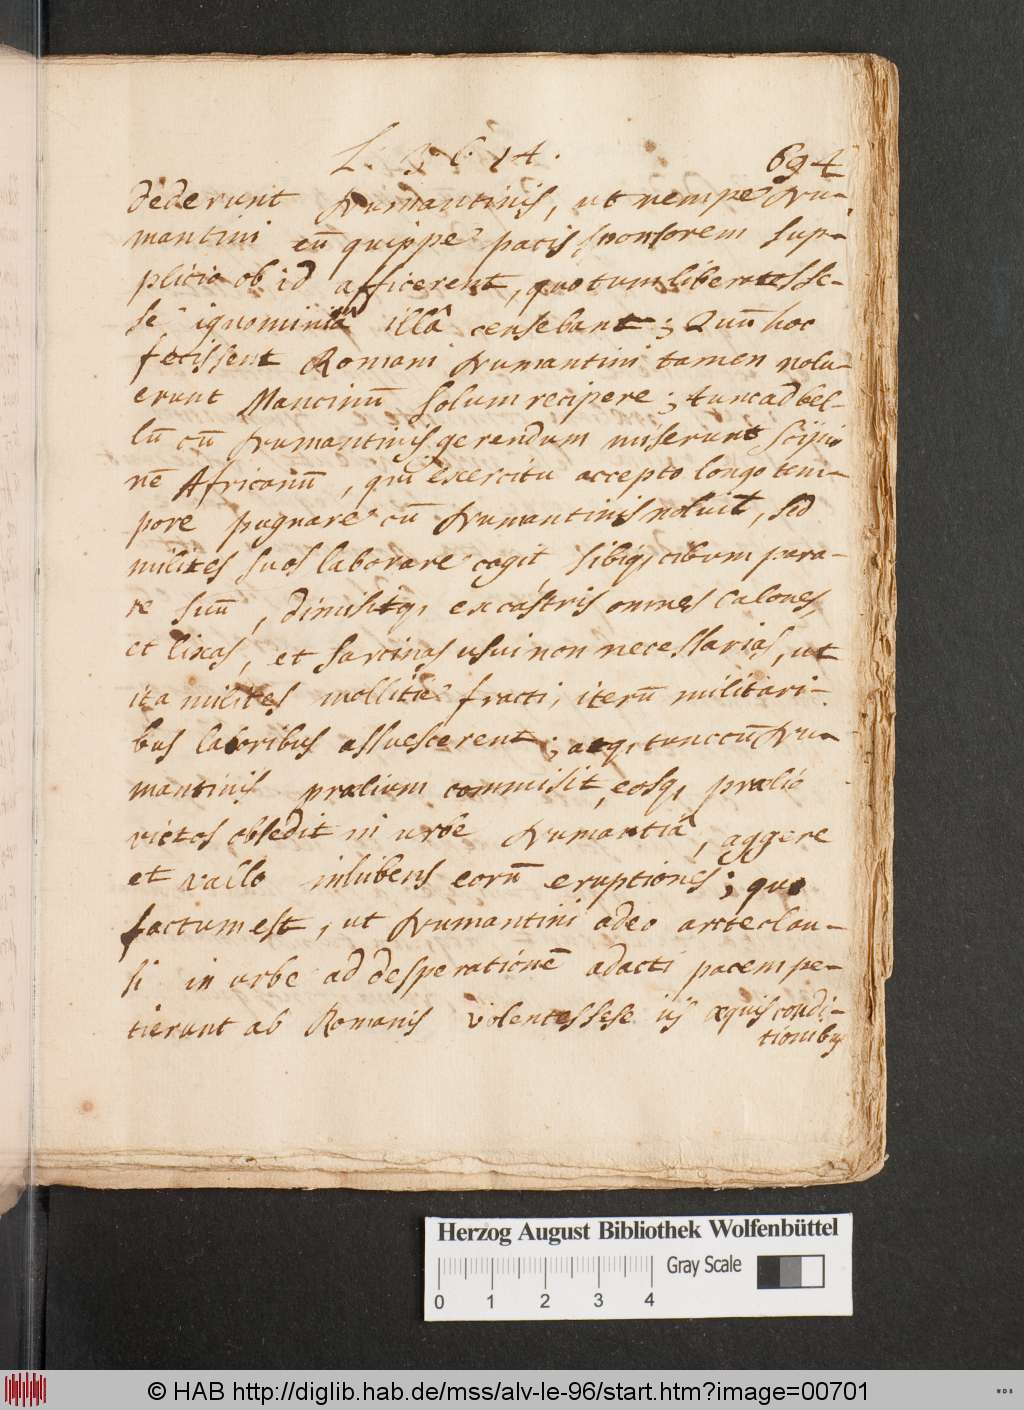 L. 3. C. 14. 694
dederunt Numantinis, ut nempe Nu-
mantini eū quippe pacis sponsorem sup-
plicio ob id afficerent, quo tum liberatos se-
se ignominiâ illâ censebant; Quū hoc
fecissent Romani Numantini tamen nolu-
erunt Mancinū solum recipere; tunc ad bel-
lū cū Numantinis gerendum miserunt Scipio
nē Africanū, qui exercitu accepto longo tem-
pore pugnare cū Numantinis noluit, sed
milites suos laborare cogit, sibiq, cibum para-
re suū, dimisitq, ex castris omnes calones,
et lixas, et sarcinas usui non necessarias, ut
ita milites mollitie fracti, iterū militari-
bus laboribus assuescerent; atq, tunc cū Nu-
mantinis prælium commisit, eosq, prælio
victos obsedit in urbe Numantiâ, aggere
et vallo inhibens eorū eruptiones; quo
factum est, ut Numantini adeo arcte clau-
si in urbe ad desperationē adacti pacem pe-
tierunt ab Romanis volentes sese ijs æquis condi-
tionibus
Herzog August Bibliothek Wolfenbüttel
Gray Scale
0 1 2 3 4
© HAB http://diglib.hab.de/mss/alv-le-96/start.htm?image=00701